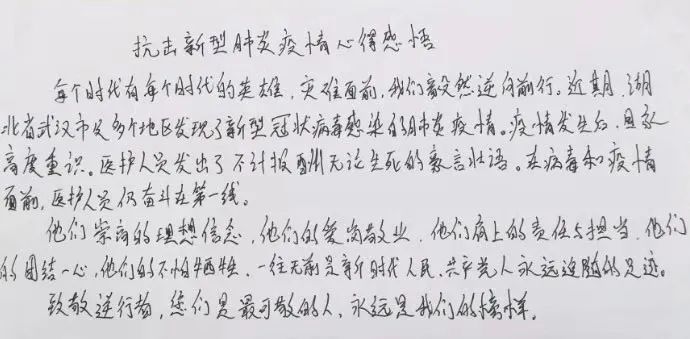 抗击新型肺炎疫情心得感悟
每个时代有每个时代的英雄,灾难面前,我们毅然逆向前行。近期,湖
北省武汉市及多个地区发现了新型冠状病毒感染的肺炎疫情。疫情发生后,国家
高度重识。医护人员发出了不计报酬无论生死的豪言壮语。在病毒和疫情
面前,医护人员仍奋斗在第一线。
他们崇高的理想信念,他们的爱岗敬业,他们肩上的责任与担当,他们
的团结一心,他们的不怕牺牲,一往无前是新时代人民,共产党人永远追随的足迹。
致敬逆行者,您们是最可敬的人,永远是我们的榜样。